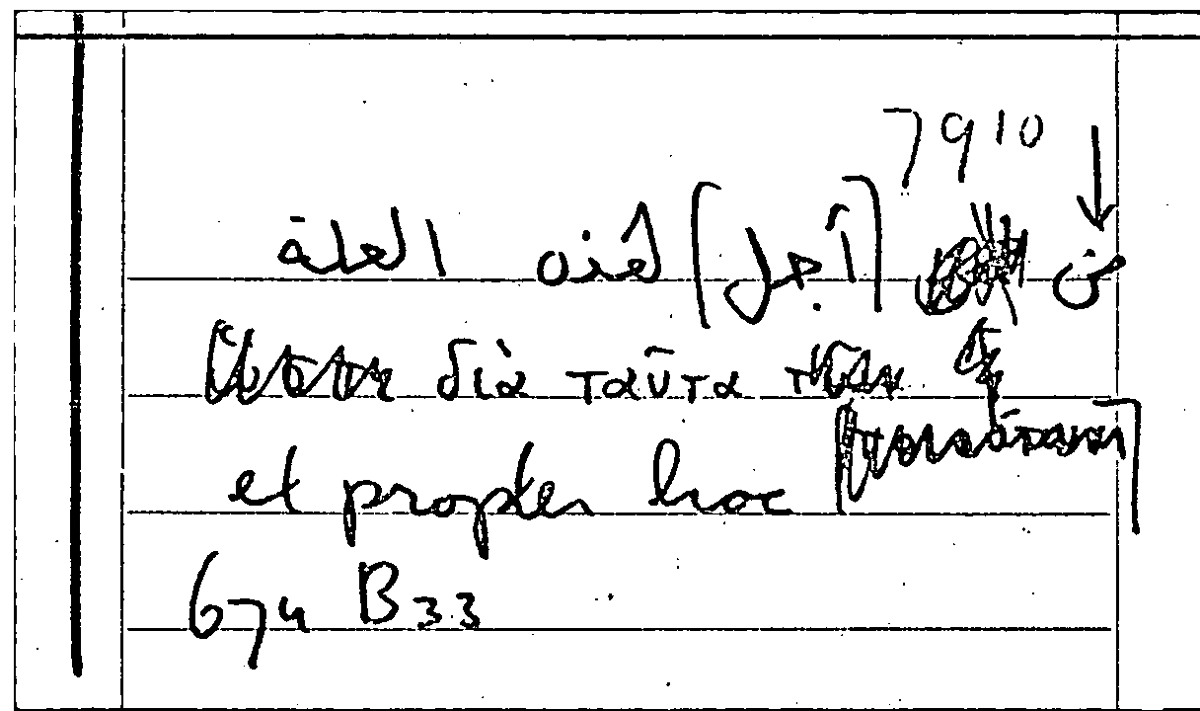 7910
من [أجل] لهذه العلة
διὰ ταῦτα
et propter hoc
674 B33